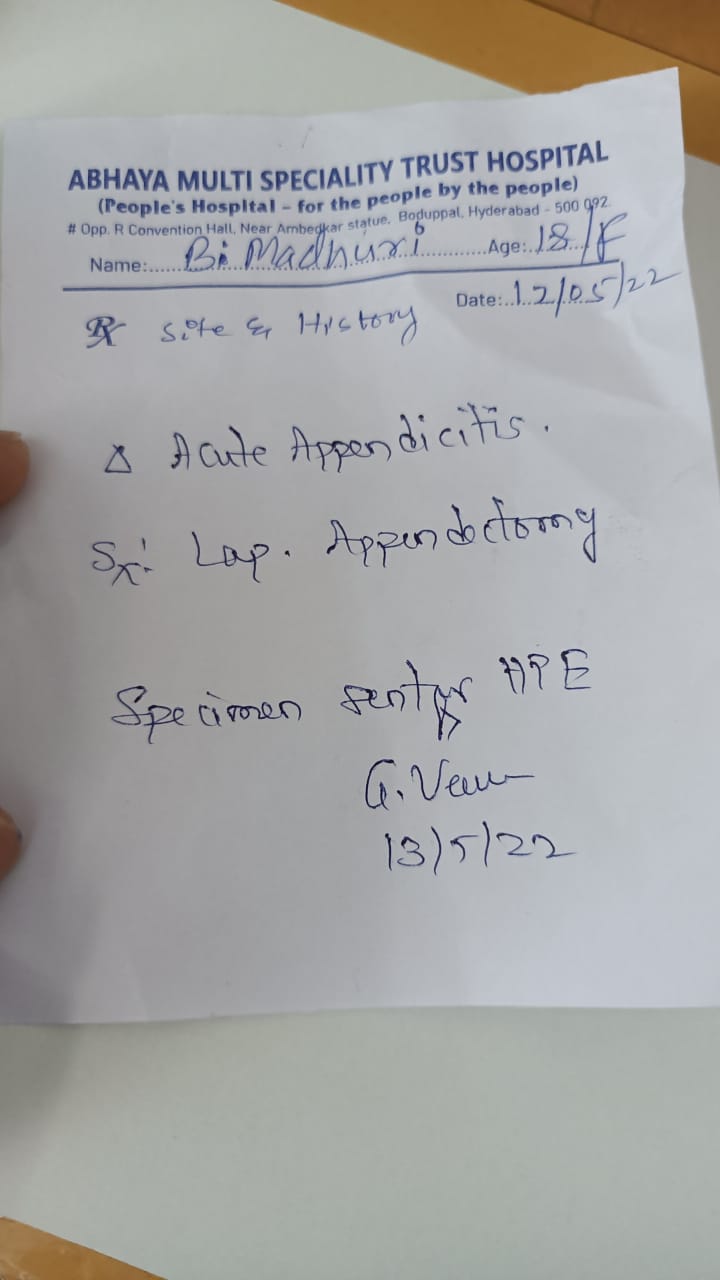 ABHAYA MULTI SPECIALITY TRUST HOSPITAL
(People's Hospital – for the people by the people)
# Opp. R Convention Hall, Near Ambedkar statue, Boduppal, Hyderabad - 500 092.
Name:...... Bi Madhuri ......Age:..18../F
Date:..12/05/22
Rx Site & History
Δ Acute Appendicitis.
Sx: Lap. Appendectomy
Specimen sent for HPE
G. Veeru
13/5/22